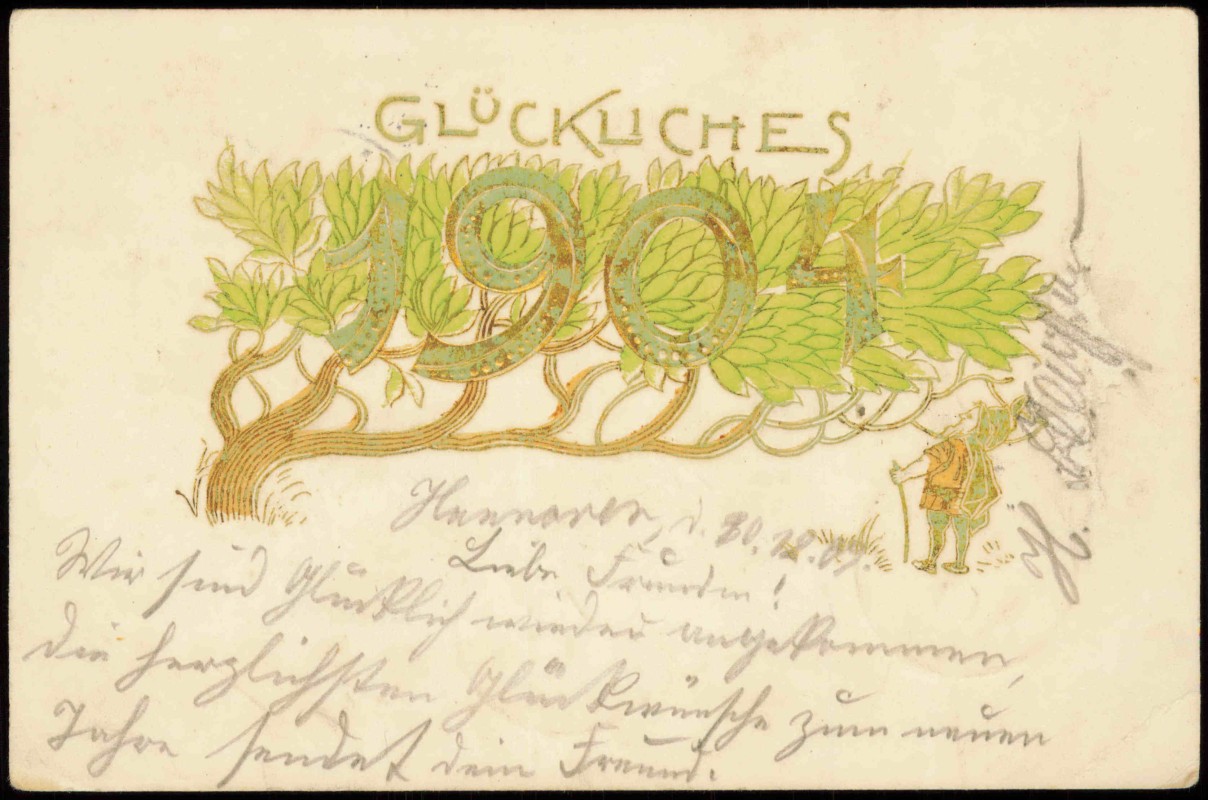 GLÜCKLICHES
1904
Hannover, d. 30.12.03.
Liebe Freundin!
Wir sind Glücklich wieder angekommen,
die herzlichsten Glückwünsche zum neuen
Jahre sendet dein Freund.
H.